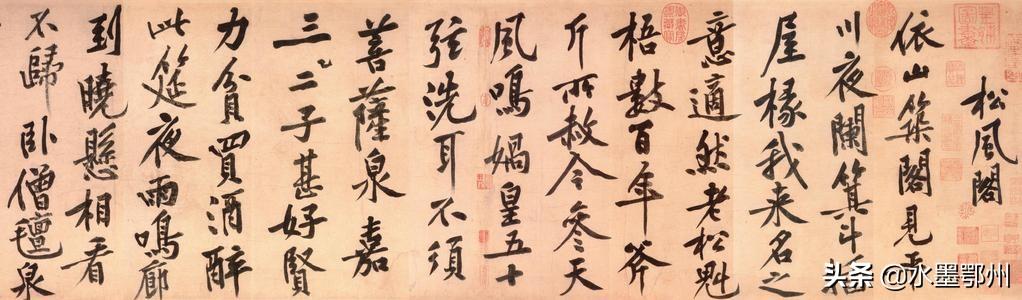 松風閣
依山築閣見平
川夜闌箕斗插
屋椽我来名之
意適然老松魁
梧數百年斧
斤所赦今參天
風鳴媧皇五十
弦洗耳不須
菩薩泉嘉
三二子甚好賢
力貧買酒醉
此筵夜雨鳴廊
到曉懸相看
不歸卧僧氊泉
头条 @水墨鄂州